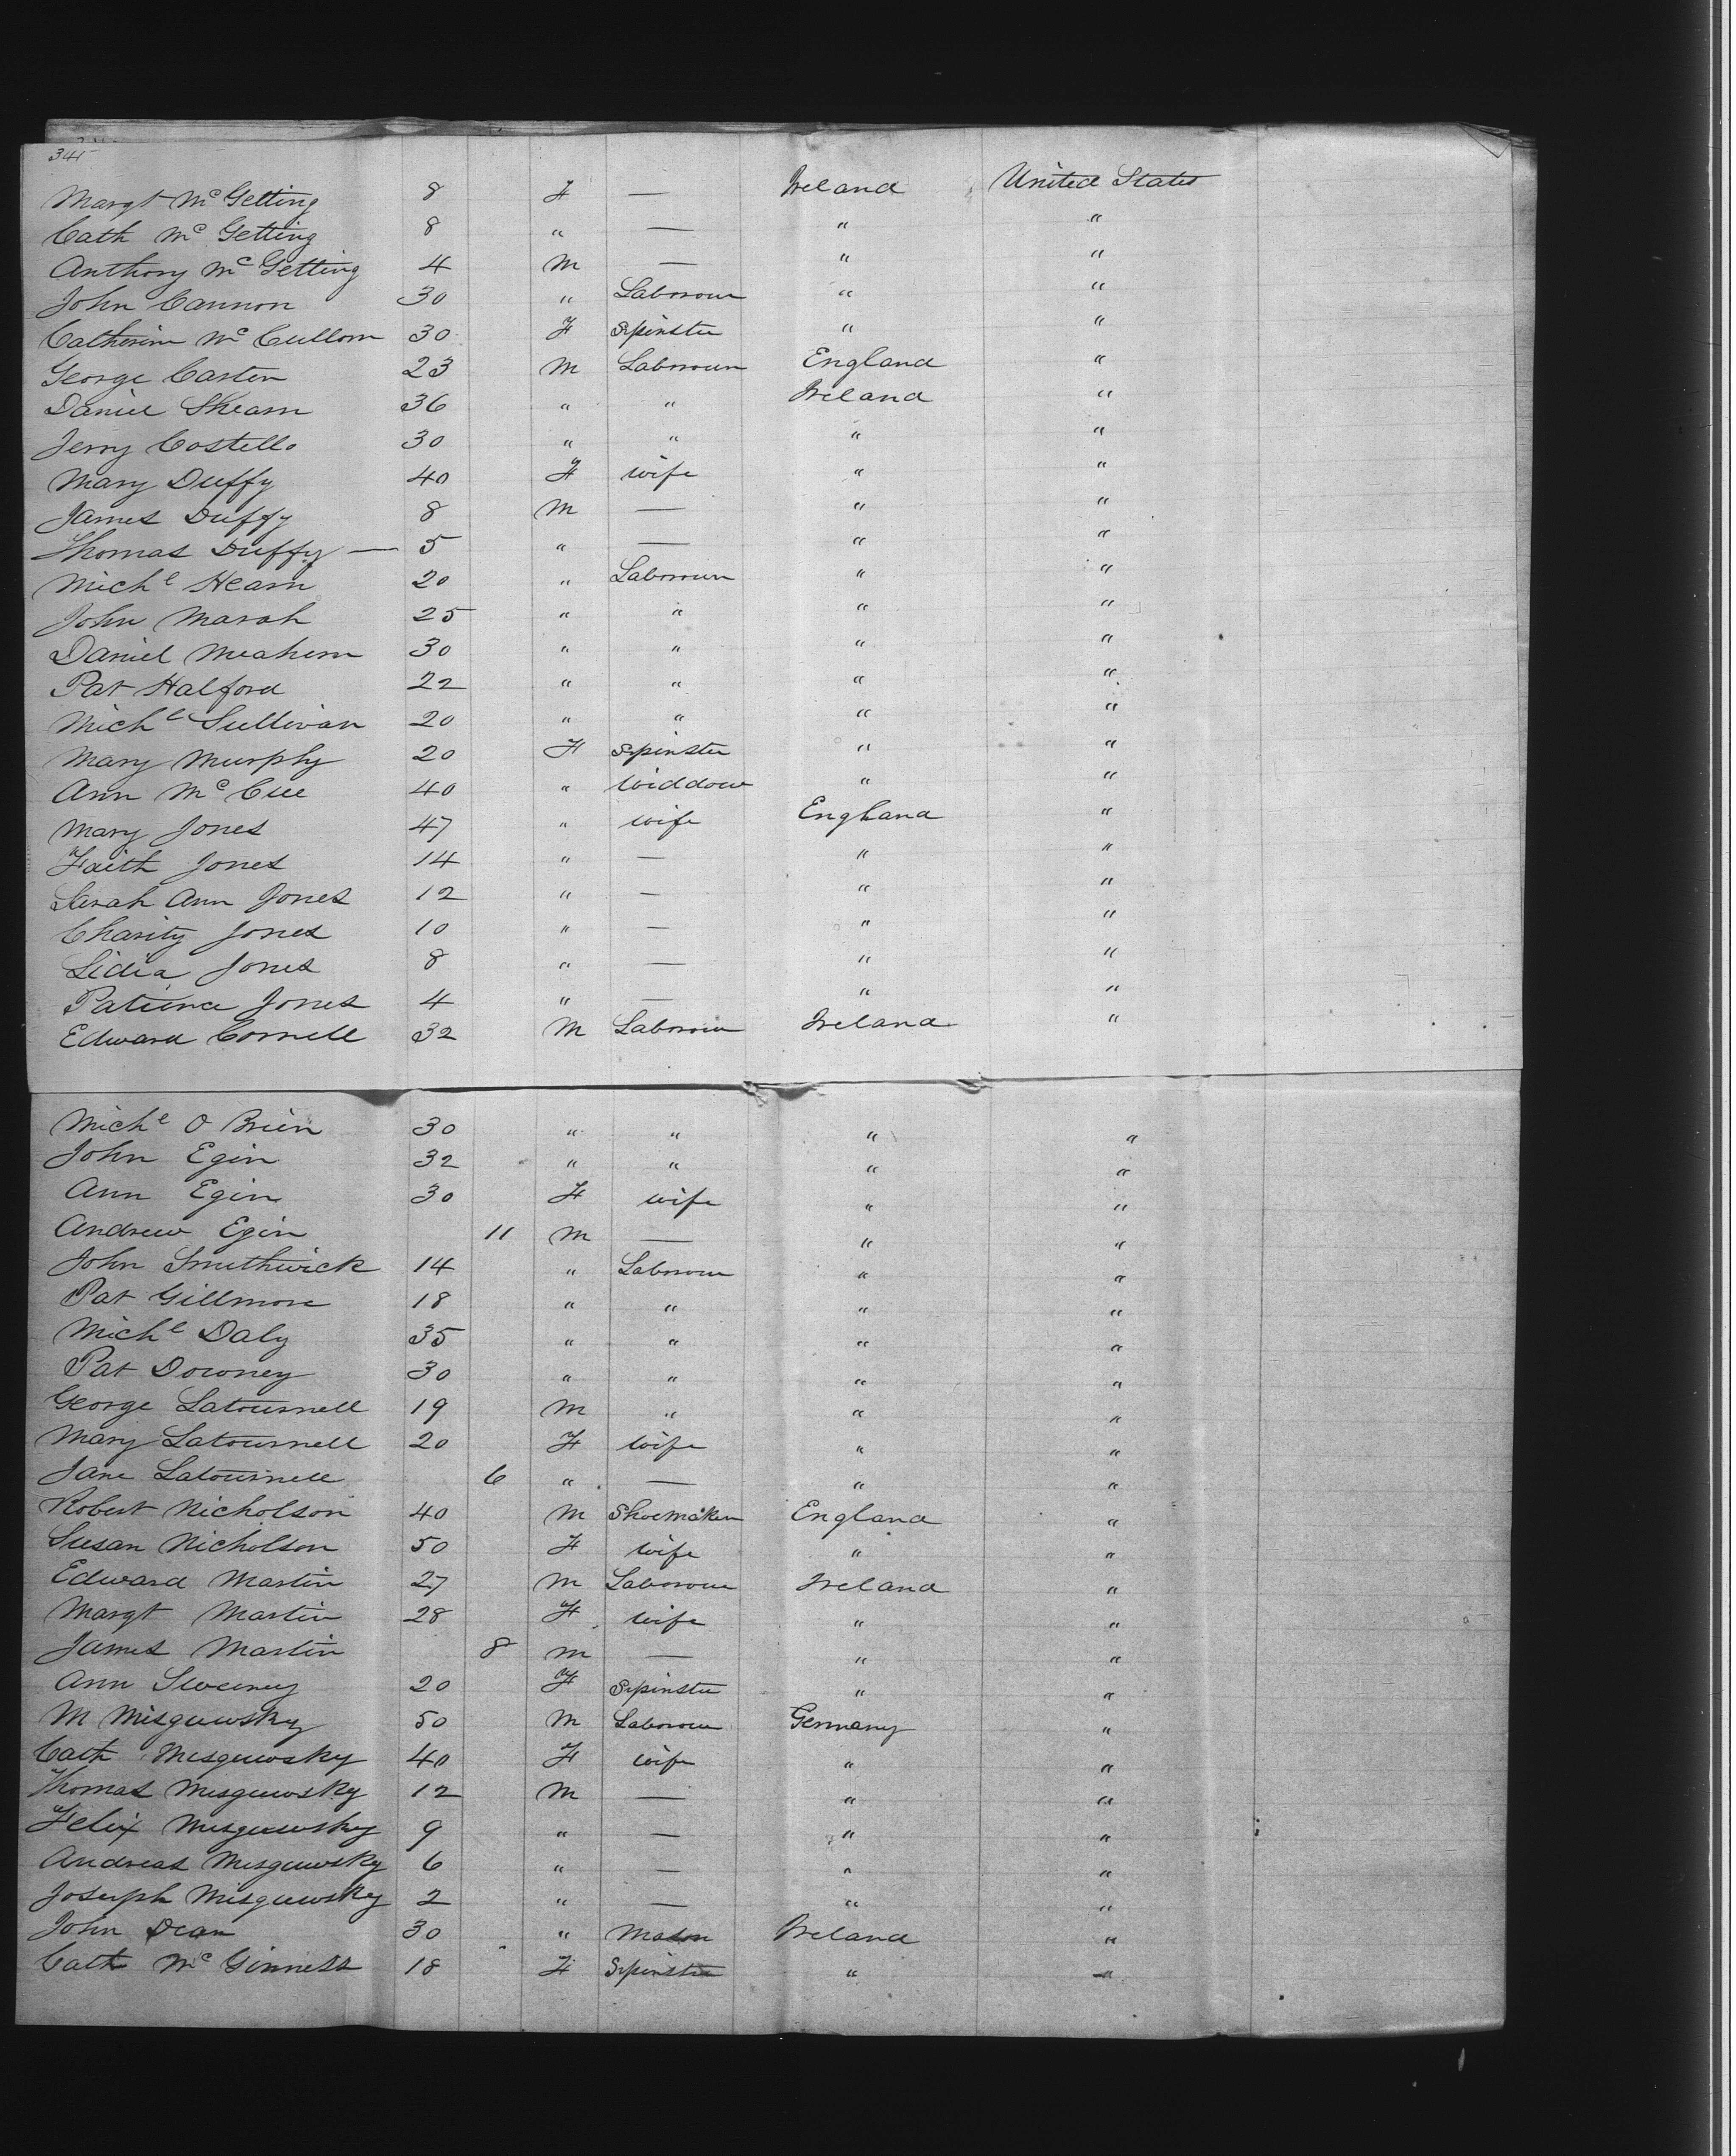 345
Margt McGetting 8 F — Ireland United States
Cath McGetting 8 " — " "
Anthony McGetting 4 M — " "
John Cannon 30 " Labourer " "
Catherine McCullom 30 F Spinster " "
George Carten 23 M Labourer England "
Daniel Shearn 36 " " Ireland "
Jerry Costello 30 " " " "
Mary Duffy 40 F wife " "
James Duffy 8 M — " "
Thomas Duffy — 5 " — " "
Michl Hearn 20 " Labourer " "
John Marah 25 " " " "
Daniel Meahern 30 " " " "
Pat Halford 22 " " " "
Michl Sullivan 20 " " " "
Mary Murphy 20 F Spinster " "
Ann McCue 40 " Widdow " "
Mary Jones 47 " wife England "
Faith Jones 14 " — " "
Sarah Ann Jones 12 " — " "
Charity Jones 10 " — " "
Lidia Jones 8 " — " "
Patience Jones 4 " — " "
Edward Cornell 32 M Labourer Ireland "
Michl O Brien 30 " " " "
John Egin 32 " " " "
Ann Egin 30 F wife " "
Andrew Egin 11 M — " "
John Smithwick 14 " Labourer " "
Pat Gillmore 18 " " " "
Michl Daly 35 " " " "
Pat Downey 30 " " " "
George Latournell 19 M " " "
Mary Latournell 20 F wife " "
Jane Latournell 6 " — " "
Robert Nicholson 40 M Shoemaker England "
Susan Nicholson 50 F wife " "
Edward Martin 27 M Labourer Ireland "
Margt Martin 28 F wife " "
James Martin 8 M — " "
Ann Sweeney 20 F Spinster " "
M Misguwsky 50 M Labourer Germany "
Cath Misguwsky 40 F wife " "
Thomas Misguwsky 12 M — " "
Felix Misguwsky 9 " — " "
Andreas Misguwsky 6 " — " "
Joseph Misguwsky 2 " — " "
John Dean 30 " Mason Ireland "
Cath McGinness 18 F Spinster " "